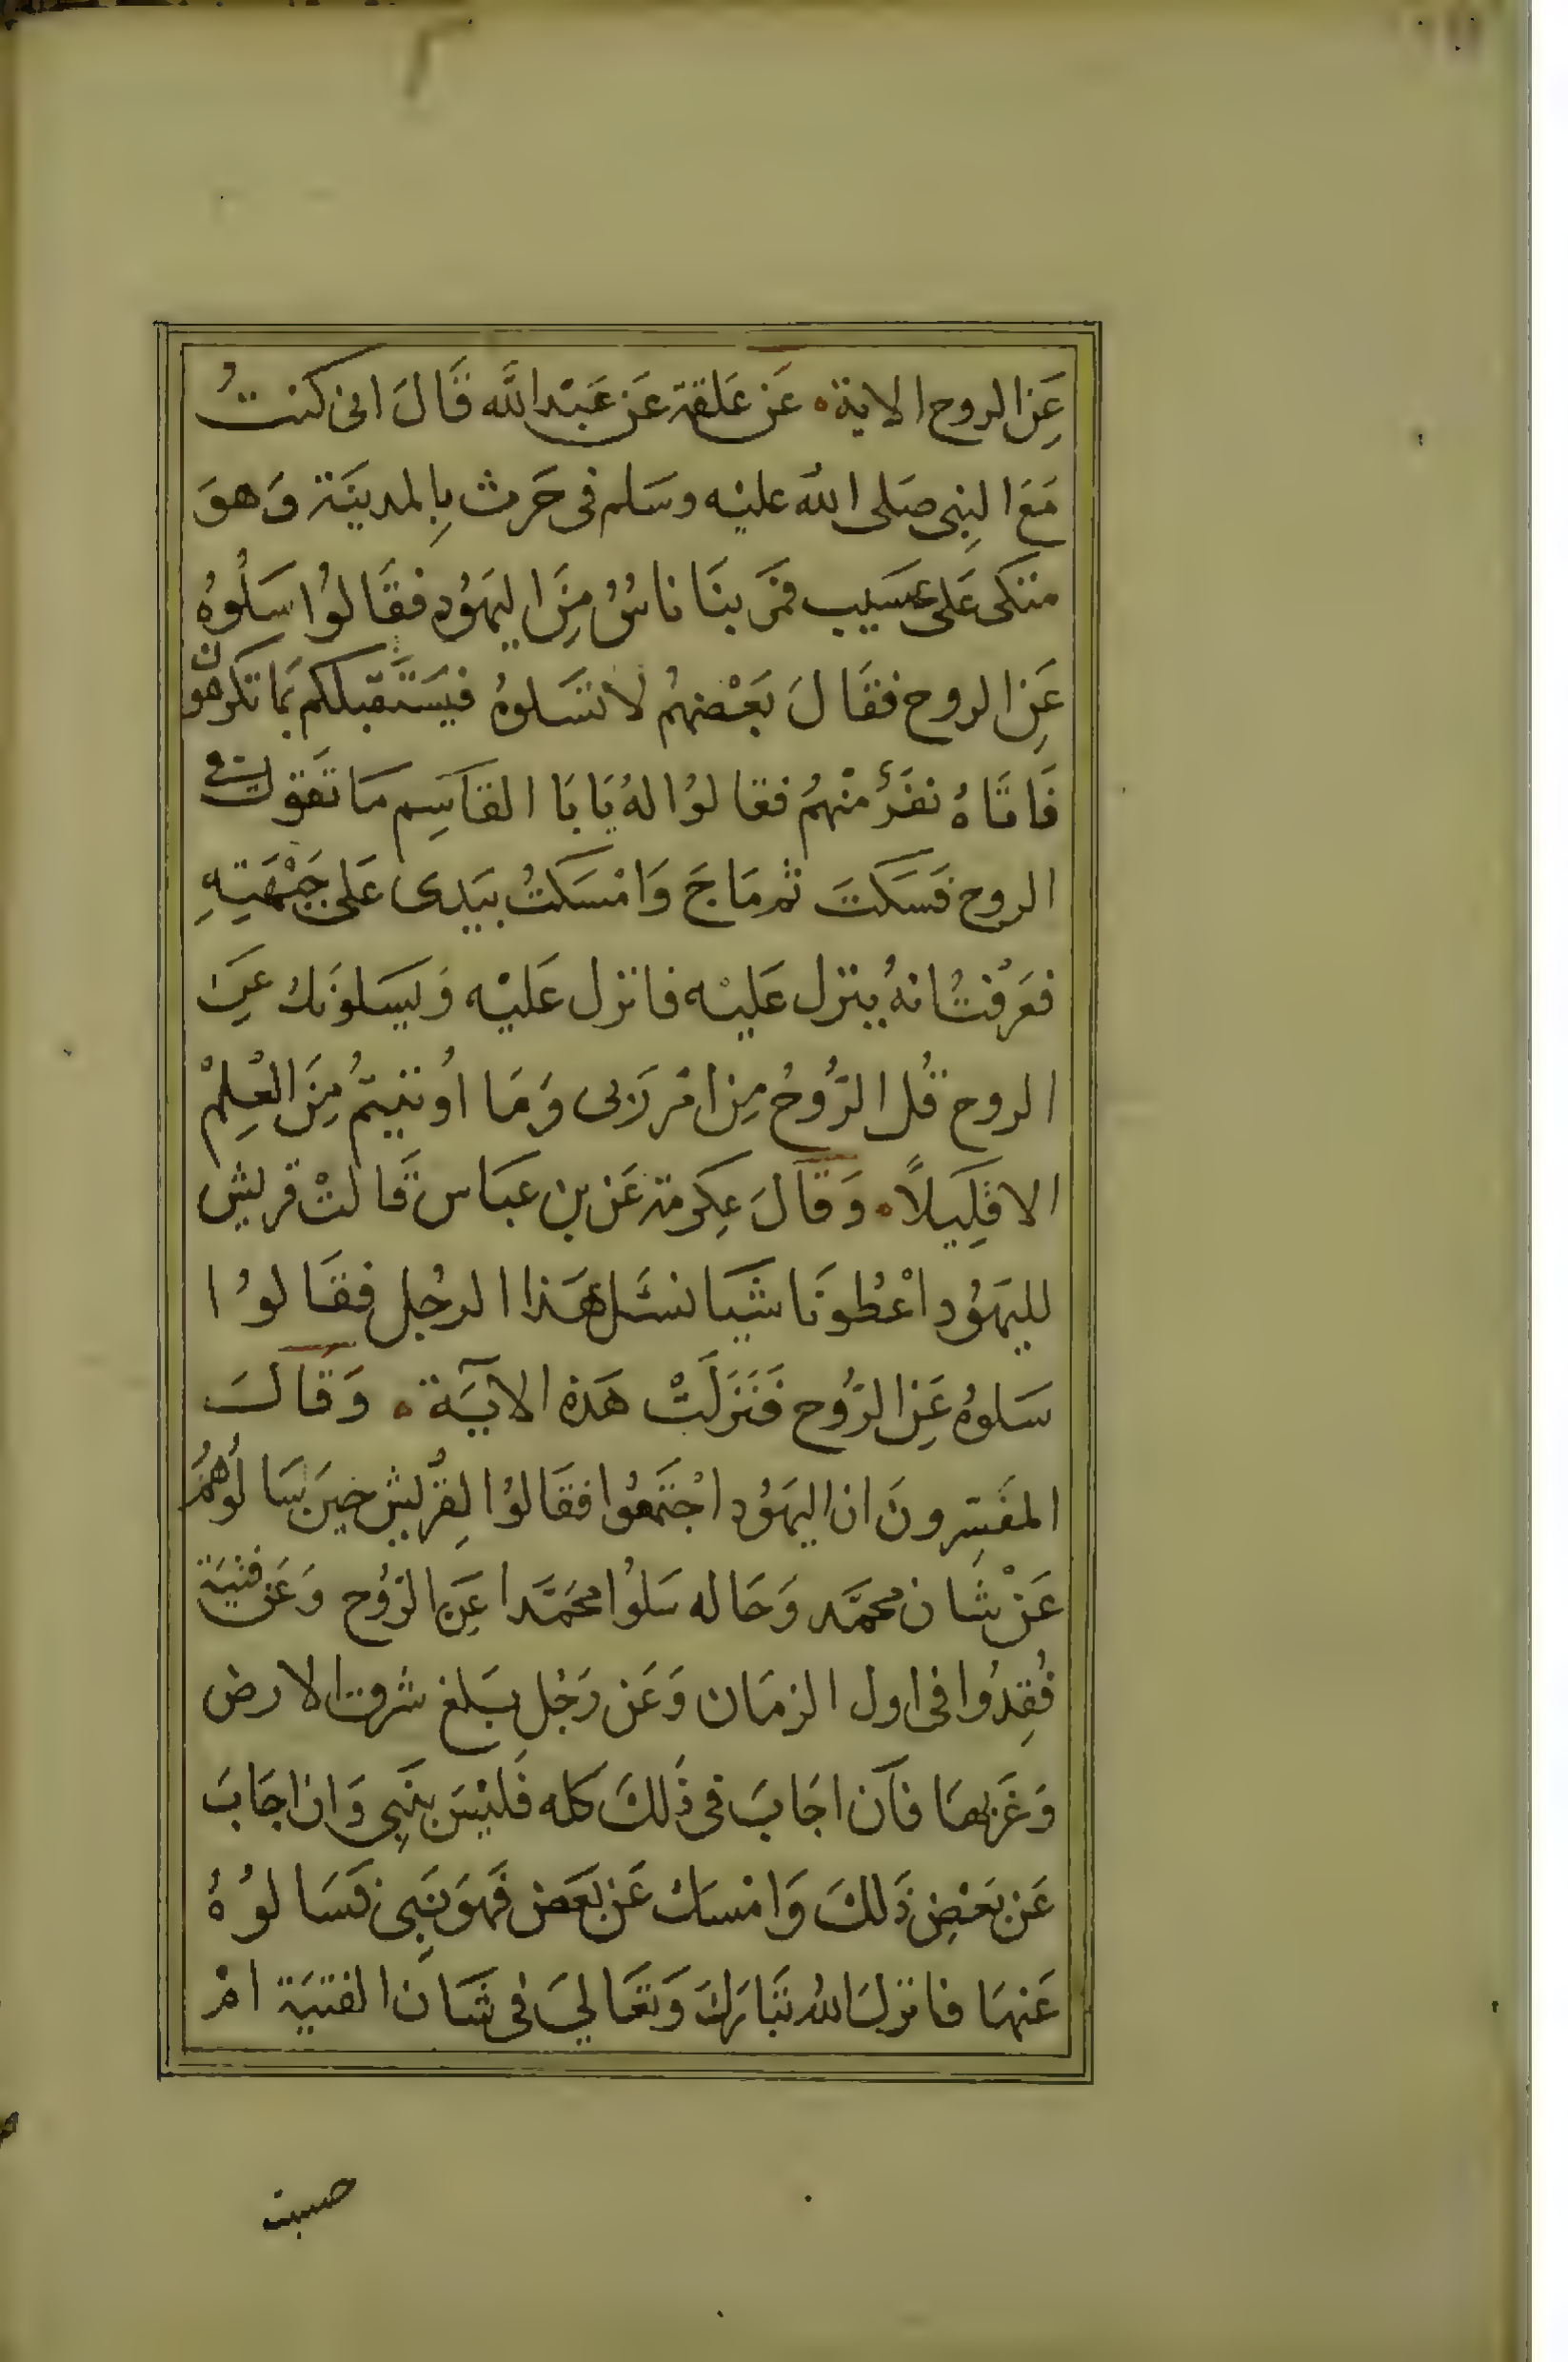 عَنِ الروح الاية ه عَن عَلقمة عَن عَبْد اللَّه قَالَ انى كنتُ
مَعَ النبِى صَلى الله عليْه وسَلم فى حَرث بِالمدينَة وَهوَ
متكى عَلى عسَيب فمَرَّ بنَا ناسُ مِنَ اليَهوُد فقَالوُا سَلوُهُ
عَنِ الروح فقَالَ بَعْضهُم لا تسَلوهُ فيَستَقبلكم بمَا تكرهون
فَاتَاهُ نفَرٌ منْهُم فقالوُا لهُ يَابَا القَاسِم مَا تَقول فى
الروح فسَكتَ ثم مَاجَ وَامْسَكتُ بيَدى عَلى جَبْهَتِهِ
فعَرَفْتُ انهُ ينزل عَليْه فانزل عَليْه وَيسَلونَك عَنِ
الروح قُل الرُّوحُ مِن امْر رَبى وَمَا اُوتيتُم مِنَ العُلِمْ
الا قَلِيلاً ه وَقَالَ عِكرمة عَن بن عبَاس قَالتْ قريش
لليَهوُد اعْطُونَا شيَا نسَل هَذا الرجُل فقَالوُا
سَلوهُ عَنِ الرُّوح فَنَزَلَتْ هَذه الايَة ه وَقَالَ
المفَسِرونَ ان اليَهوُد اجْتَمعُوا فقَالوُا لِقرُيش حِينَ سَالوُهُمْ
عَنْ شَان محمَّد وَحَاله سَلوُا محمَّدا عَنِ الرُّوح وَعَن فتيَة
فُقِدُوا فى اول الزمَان وَعَن رَجُل بَلغ شرق الارض
وَغَربهَا فان اجَابَ فى ذَلكَ كله فَليْسَ بنَبِى وَان اجَابَ
عَن بَعْضِ ذَلكَ وَامْسَك عَن بعَض فَهوَ نَبِى فسَالوُهُ
عَنهَا فانزلَ اللهُ تبَارَكَ وَتعَالىَ فى شَان الفتيَة امْ
حسبت